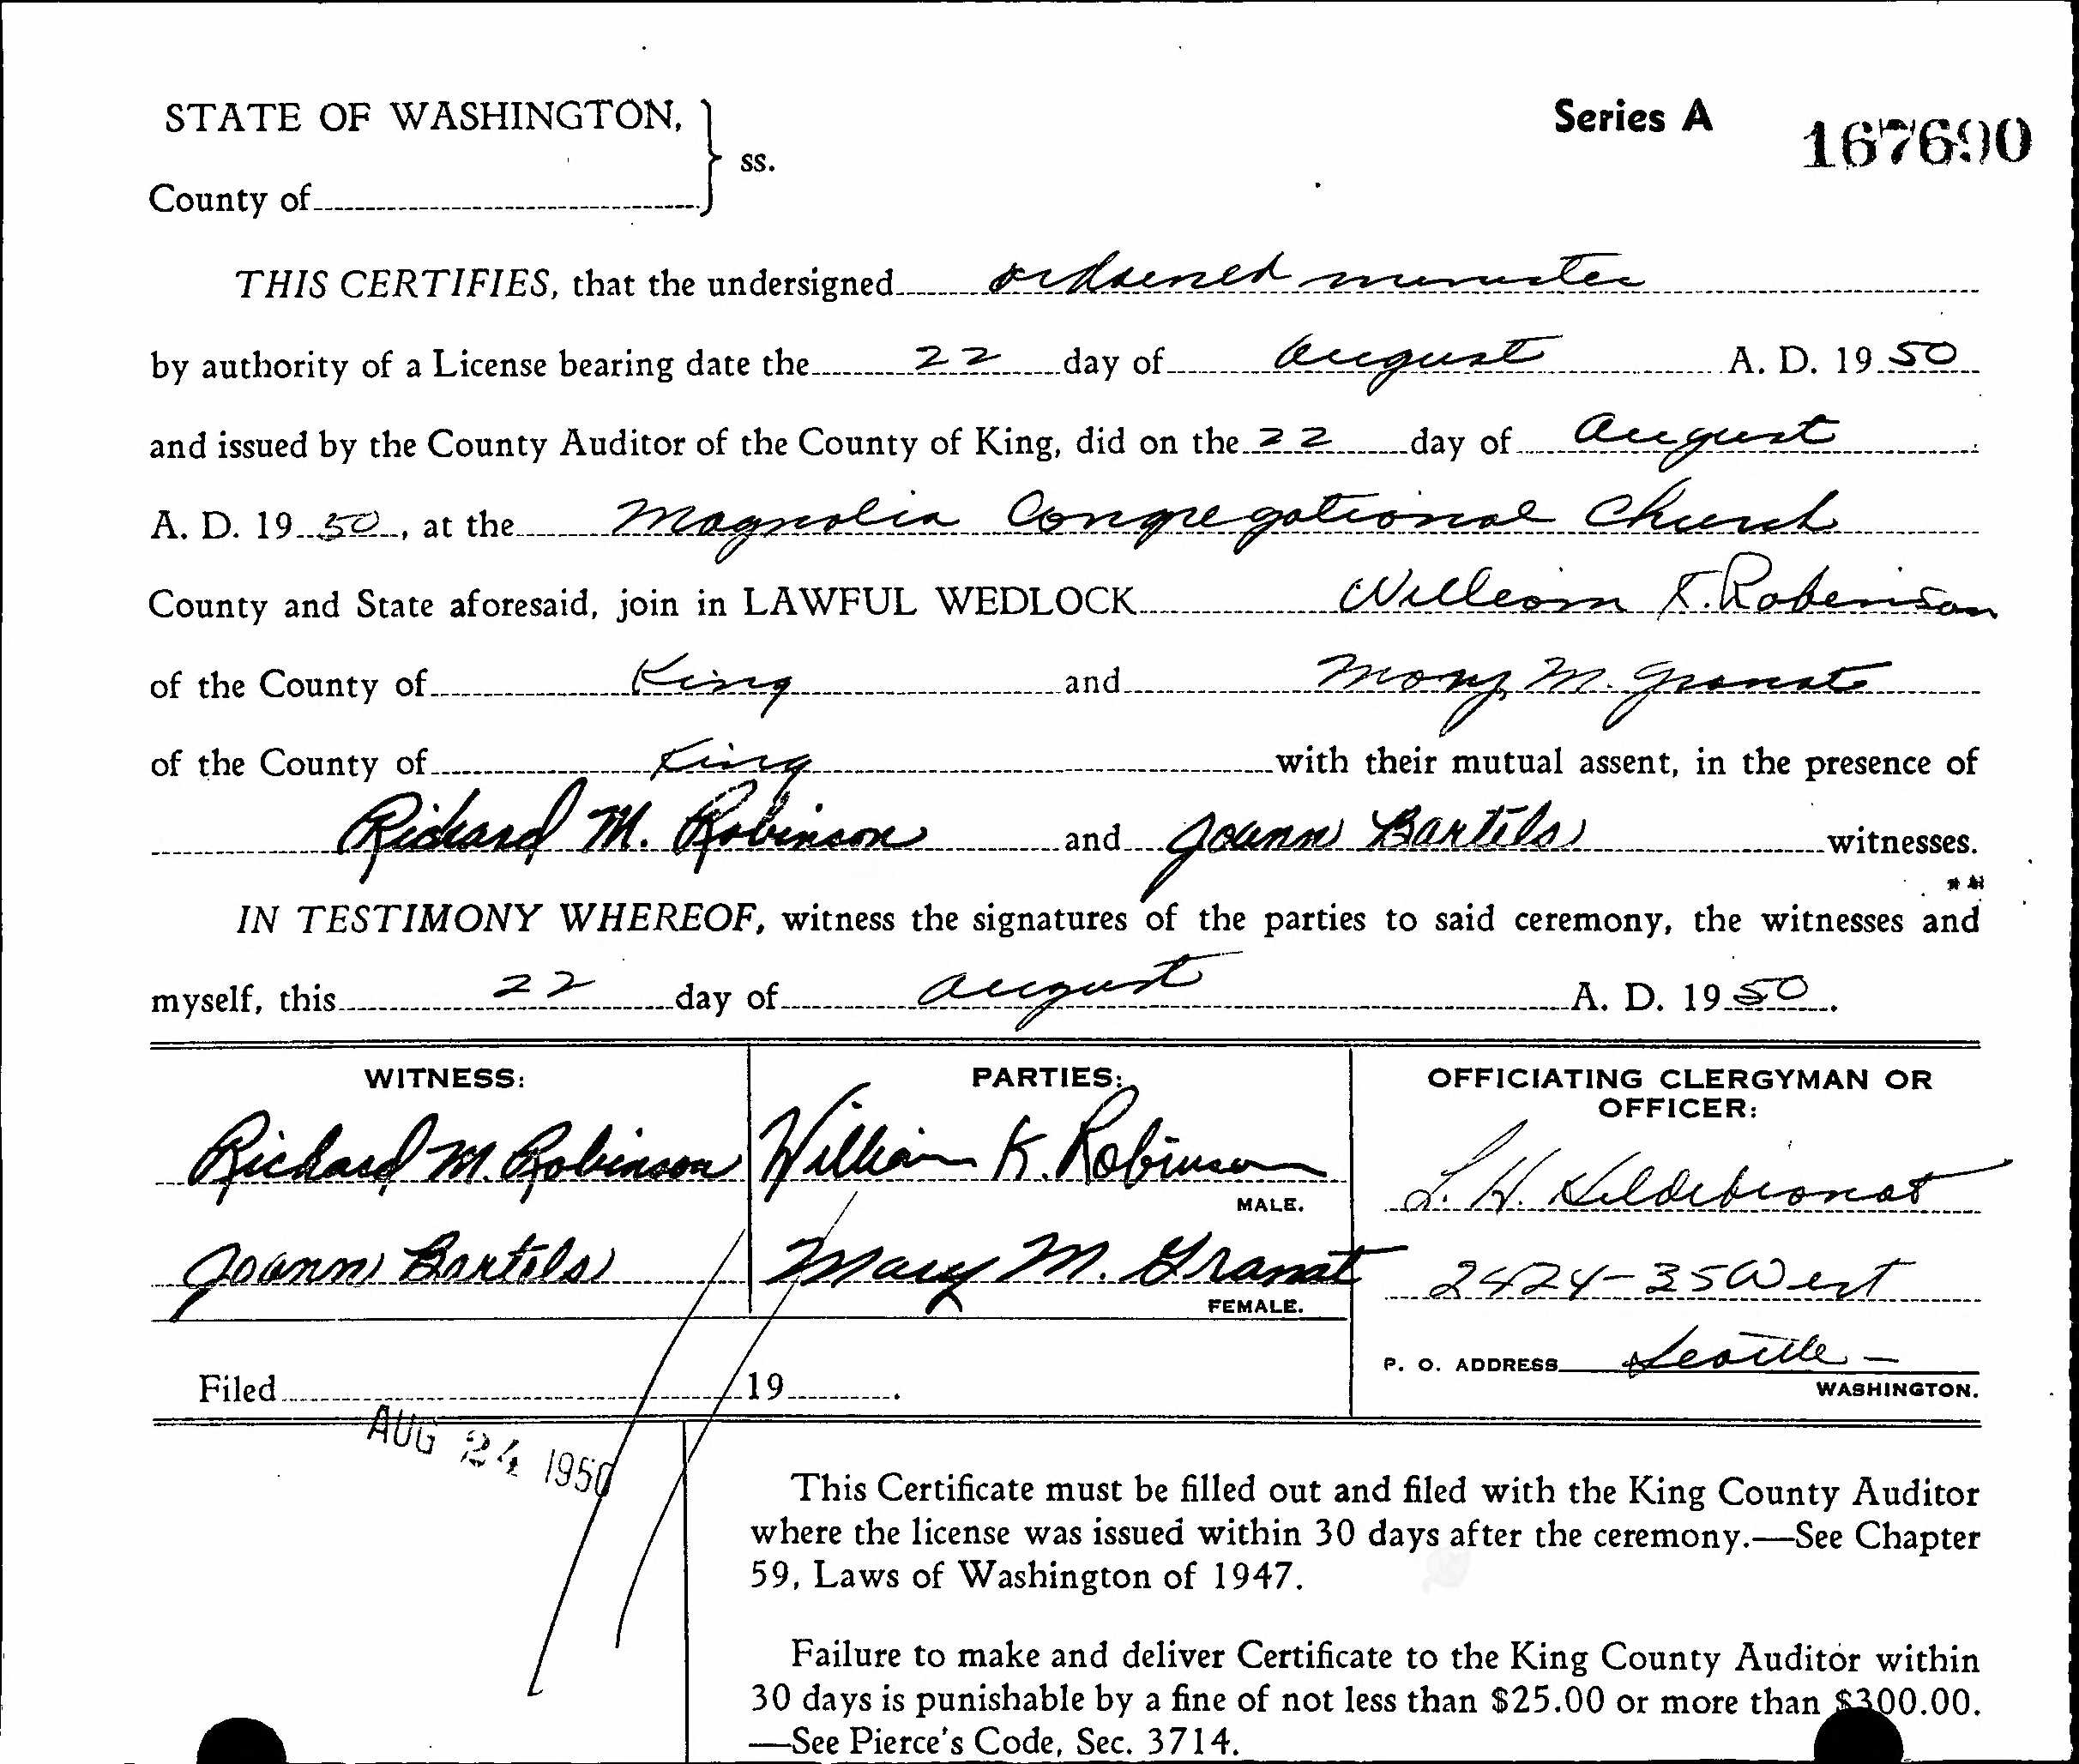 STATE OF WASHINGTON,
ss.
County of
Series A 167690
THIS CERTIFIES, that the undersigned ordained minister
by authority of a License bearing date the 22 day of August A. D. 19 50
and issued by the County Auditor of the County of King, did on the 22 day of August
A. D. 19 50, at the Magnolia Congregational Church
County and State aforesaid, join in LAWFUL WEDLOCK William K. Robinson
of the County of King and Mary M. Grant
of the County of King with their mutual assent, in the presence of
Richard M. Robinson and Joann Bartels witnesses.
IN TESTIMONY WHEREOF, witness the signatures of the parties to said ceremony, the witnesses and
myself, this 22 day of August A. D. 19 50.
WITNESS:
Richard M. Robinson
Joann Bartels
PARTIES:
William K. Robinson
MALE.
Mary M. Grant
FEMALE.
OFFICIATING CLERGYMAN OR
OFFICER:
L. H. Hildebrandt
2424-35 West
P. O. ADDRESS Seattle -
WASHINGTON.
Filed 19 .
AUG 24 1950
This Certificate must be filled out and filed with the King County Auditor
where the license was issued within 30 days after the ceremony.—See Chapter
59, Laws of Washington of 1947.
Failure to make and deliver Certificate to the King County Auditor within
30 days is punishable by a fine of not less than $25.00 or more than $300.00.
—See Pierce's Code, Sec. 3714.